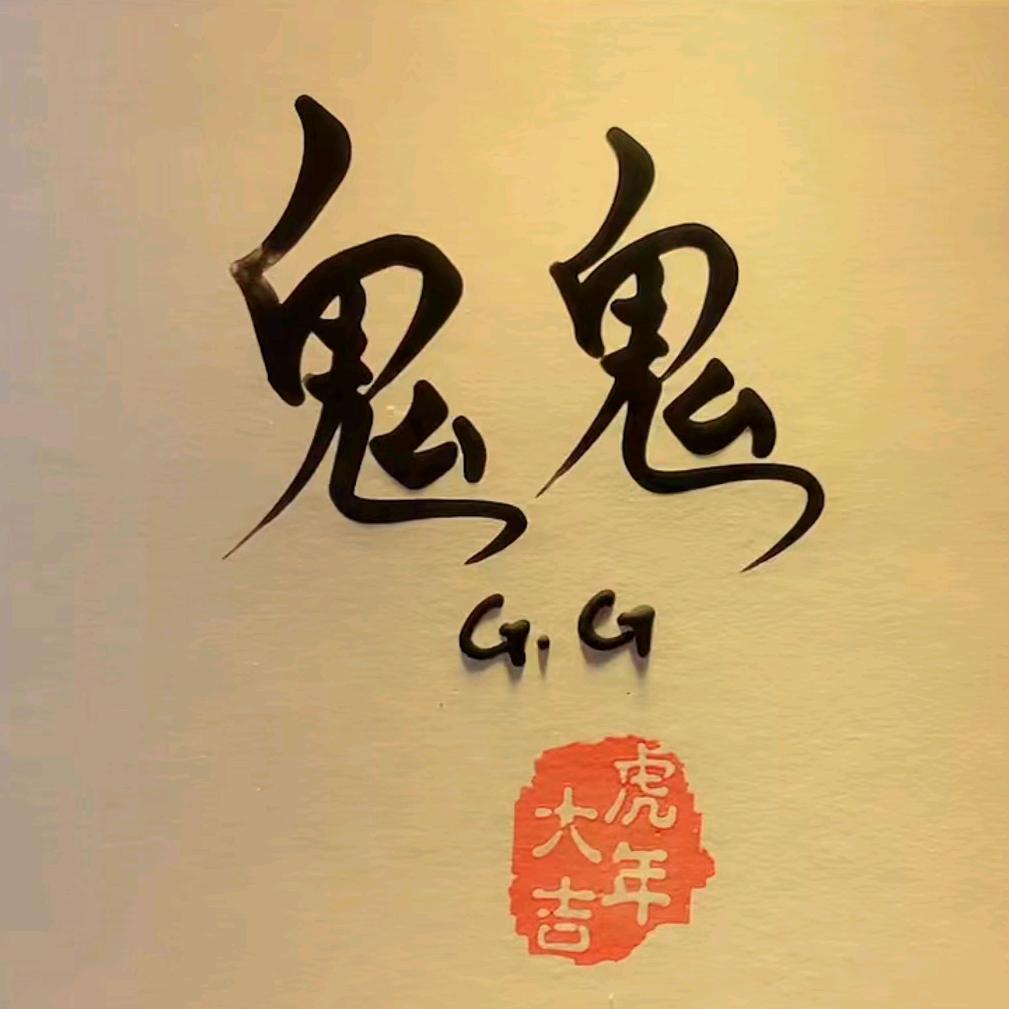 鬼鬼
G.G
虎年
大吉